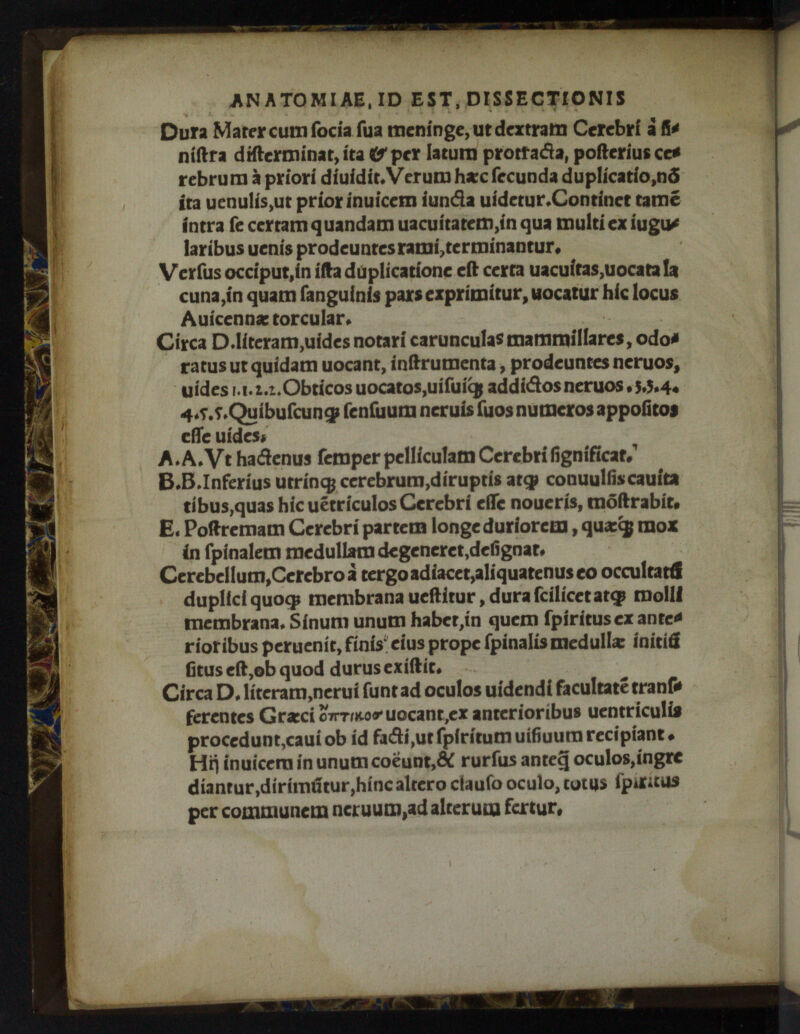 ANATOMIAE, ID EST, DISSECTIONIS
Dura Mater cum ſocia ſua meninge, ut dextram Cerebri à ſi⸗
niſtra diſterminat, ita & per latum protracta, poſterius ce⸗
rebrum à priori diuidit. Verum hæc ſecunda duplicatio, nõ
ita uenulis, ut prior inuicem iuncta uidetur. Continet tamẽ
intra ſe certam quandam uacuitatem, in qua multi ex iugu⸗
laribus uenis prodeuntes rami, terminantur.
Verſus occiput, in iſta duplicatione eſt certa uacuitas, uocata la
cuna, in quam ſanguinis pars exprimitur, uocatur hic locus
Auicennæ torcular.
Circa D. literam, uides notari carunculas mammillares, odo⸗
ratus ut quidam uocant, inſtrumenta, prodeuntes neruos,
uides 1.1.2.2. Obticos uocatos, uiſuiqȝ addictos neruos. 3.3.4.
4.5.5. Quibuſcunqȝ ſenſuum neruis ſuos numeros appoſitos
eſſe uides.
A.A. Vt hactenus ſemper pelliculam Cerebri ſignificat.
B.B. Inferius utrinqȝ cerebrum, diruptis atqȝ conuulſis cauita
tibus, quas hic uẽtriculos Cerebri eſſe noueris, mõſtrabit.
E. Poſtremam Cerebri partem longe duriorem, quæqȝ mox
in ſpinalem medullam degeneret, deſignat.
Cerebellum, Cerebro à tergo adiacet, aliquatenus eo occultatũ
duplici quoqȝ membrana ueſtitur, dura ſcilicet atqȝ molli
membrana. Sinum unum habet, in quem ſpiritus ex ante⸗
rioribus peruenit, finis eius prope ſpinalis medullæ initiũ
ſitus eſt, ob quod durus exiſtit.
Circa D. literam, nerui ſunt ad oculos uidendi facultatẽ tranſ⸗
ferentes Græci ὀπτικοσ uocant, ex anterioribus uentriculis
procedunt, caui ob id facti, ut ſpiritum uiſiuum recipiant.
Hij inuicem in unum coëunt, & rurſus anteq̃ oculos, ingre
diantur, dirimũtur, hinc altero clauſo oculo, totus ſpiritus
per communem neruum, ad alterum fertur.